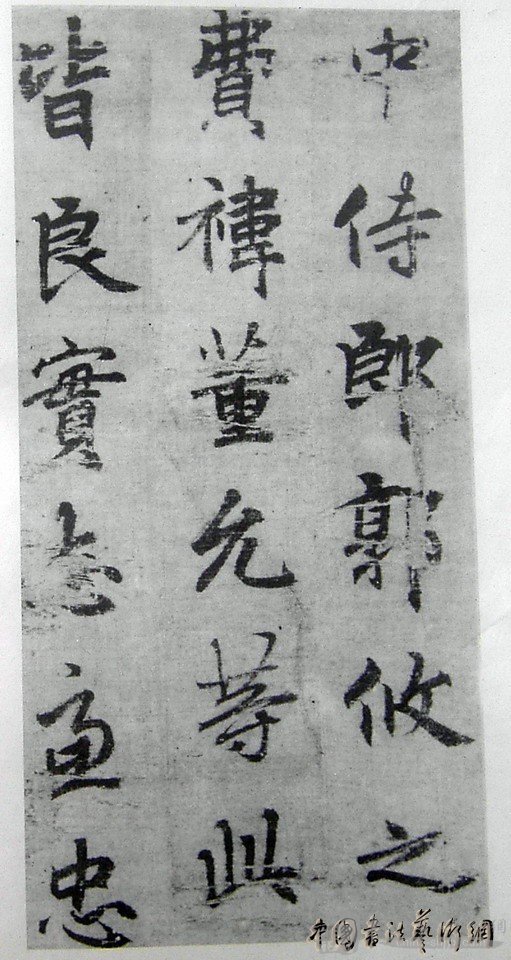 中侍郎郭攸之
費禕董允等此
皆良實志慮忠
中国书法艺术網